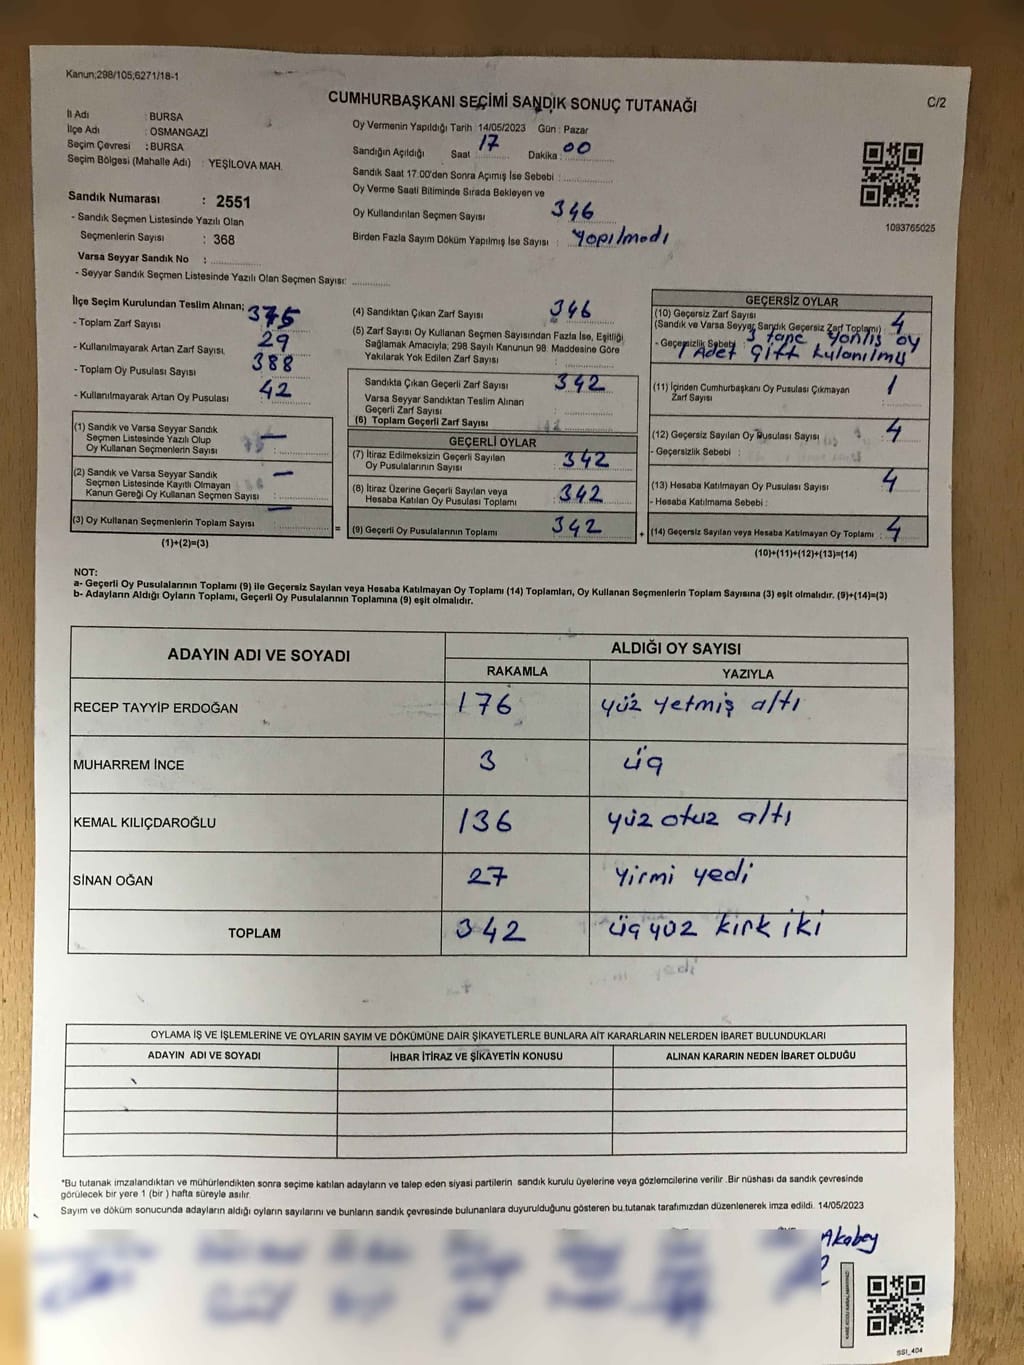 Kanun;298/105;6271/18-1
CUMHURBAŞKANI SEÇİMİ SANDIK SONUÇ TUTANAĞI
C/2
İl Adı : BURSA
İlçe Adı : OSMANGAZİ
Seçim Çevresi : BURSA
Seçim Bölgesi (Mahalle Adı) : YEŞİLOVA MAH.
Sandık Numarası : 2551
- Sandık Seçmen Listesinde Yazılı Olan
Seçmenlerin Sayısı : 368
Varsa Seyyar Sandık No :
- Seyyar Sandık Seçmen Listesinde Yazılı Olan Seçmen Sayısı:
Oy Vermenin Yapıldığı Tarih : 14/05/2023 Gün : Pazar
Sandığın Açıldığı Saat : 17 Dakika : 00
Sandık Saat 17.00'den Sonra Açımış İse Sebebi :
Oy Verme Saati Bitiminde Sırada Bekleyen ve
Oy Kullandırılan Seçmen Sayısı 346
Birden Fazla Sayım Döküm Yapılmış İse Sayısı : Yapılmadı
1093765025
İlçe Seçim Kurulundan Teslim Alınan;
- Toplam Zarf Sayısı 375
- Kullanılmayarak Artan Zarf Sayısı 29
- Toplam Oy Pusulası Sayısı 388
- Kullanılmayarak Artan Oy Pusulası 42
(1) Sandık ve Varsa Seyyar Sandık
Seçmen Listesinde Yazılı Olup
Oy Kullanan Seçmenlerin Sayısı : —
(2) Sandık ve Varsa Seyyar Sandık
Seçmen Listesinde Kayıtlı Olmayan
Kanun Gereği Oy Kullanan Seçmen Sayısı : —
(3) Oy Kullanan Seçmenlerin Toplam Sayısı : —
(1)+(2)=(3)
(4) Sandıktan Çıkan Zarf Sayısı : 346
(5) Zarf Sayısı Oy Kullanan Seçmen Sayısından Fazla İse, Eşitliği
Sağlamak Amacıyla; 298 Sayılı Kanunun 98. Maddesine Göre
Yakılarak Yok Edilen Zarf Sayısı :
Sandıkta Çıkan Geçerli Zarf Sayısı : 342
Varsa Seyyar Sandıktan Teslim Alınan
Geçerli Zarf Sayısı :
(6) Toplam Geçerli Zarf Sayısı
GEÇERLİ OYLAR
(7) İtiraz Edilmeksizin Geçerli Sayılan
Oy Pusulalarının Sayısı : 342
(8) İtiraz Üzerine Geçerli Sayılan veya
Hesaba Katılan Oy Pusulası Toplamı : 342
= (9) Geçerli Oy Pusulalarının Toplamı : 342
GEÇERSİZ OYLAR
(10) Geçersiz Zarf Sayısı
(Sandık ve Varsa Seyyar Sandık Geçersiz Zarf Toplamı) : 4
- Geçersizlik Sebebi : 3 tane yanlış oy
1 Adet Çift kulanılmış
(11) İçinden Cumhurbaşkanı Oy Pusulası Çıkmayan
Zarf Sayısı : 1
(12) Geçersiz Sayılan Oy Pusulası Sayısı : 4
- Geçersizlik Sebebi :
(13) Hesaba Katılmayan Oy Pusulası Sayısı : 4
- Hesaba Katılmama Sebebi :
+ (14) Geçersiz Sayılan veya Hesaba Katılmayan Oy Toplamı : 4
(10)+(11)+(12)+(13)=(14)
NOT:
a- Geçerli Oy Pusulalarının Toplamı (9) ile Geçersiz Sayılan veya Hesaba Katılmayan Oy Toplamı (14) Toplamları, Oy Kullanan Seçmenlerin Toplam Sayısına (3) eşit olmalıdır. (9)+(14)=(3)
b- Adayların Aldığı Oyların Toplamı, Geçerli Oy Pusulalarının Toplamına (9) eşit olmalıdır.
ADAYIN ADI VE SOYADI ALDIĞI OY SAYISI
RAKAMLA YAZIYLA
RECEP TAYYİP ERDOĞAN 176 yüz yetmiş altı
MUHARREM İNCE 3 üç
KEMAL KILIÇDAROĞLU 136 yüz otuz altı
SİNAN OĞAN 27 yirmi yedi
TOPLAM 342 üç yüz kırk iki
OYLAMA İŞ VE İŞLEMLERİNE VE OYLARIN SAYIM VE DÖKÜMÜNE DAİR ŞİKAYETLERLE BUNLARA AİT KARARLARIN NELERDEN İBARET BULUNDUKLARI
ADAYIN ADI VE SOYADI İHBAR İTİRAZ VE ŞİKAYETİN KONUSU ALINAN KARARIN NEDEN İBARET OLDUĞU
*Bu tutanak imzalandıktan ve mühürlendikten sonra seçime katılan adayların ve talep eden siyasi partilerin sandık kurulu üyelerine veya gözlemcilerine verilir. Bir nüshası da sandık çevresinde
görülecek bir yere 1 (bir) hafta süreyle asılır.
Sayım ve döküm sonucunda adayların aldığı oyların sayılarını ve bunların sandık çevresinde bulunanlara duyurulduğunu gösteren bu tutanak tarafımızdan düzenlenerek imza edildi. 14/05/2023
Akabey
SSI_404